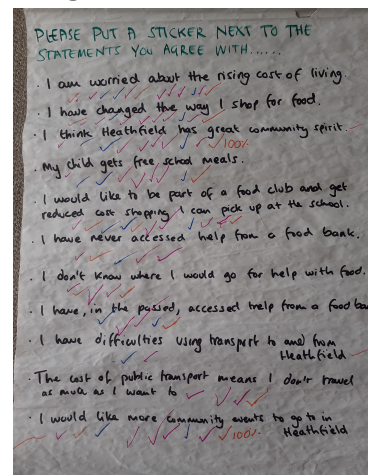 PLEASE PUT A STICKER NEXT TO THE
STATEMENTS YOU AGREE WITH......
· I am worried about the rising cost of living.
· I have changed the way I shop for food.
· I think Heathfield has great community spirit.
100%
· My child gets free school meals.
· I would like to be part of a food club and get
reduced cost shopping I can pick up at the school.
· I have never accessed help from a food bank.
· I don't know where I would go for help with food.
· I have, in the passed, accessed help from a food ba
· I have difficulties using transport to and from
Heathfield
· The cost of public transport means I don't travel
as much as I want to
· I would like more community events to go to in
Heathfield
100%